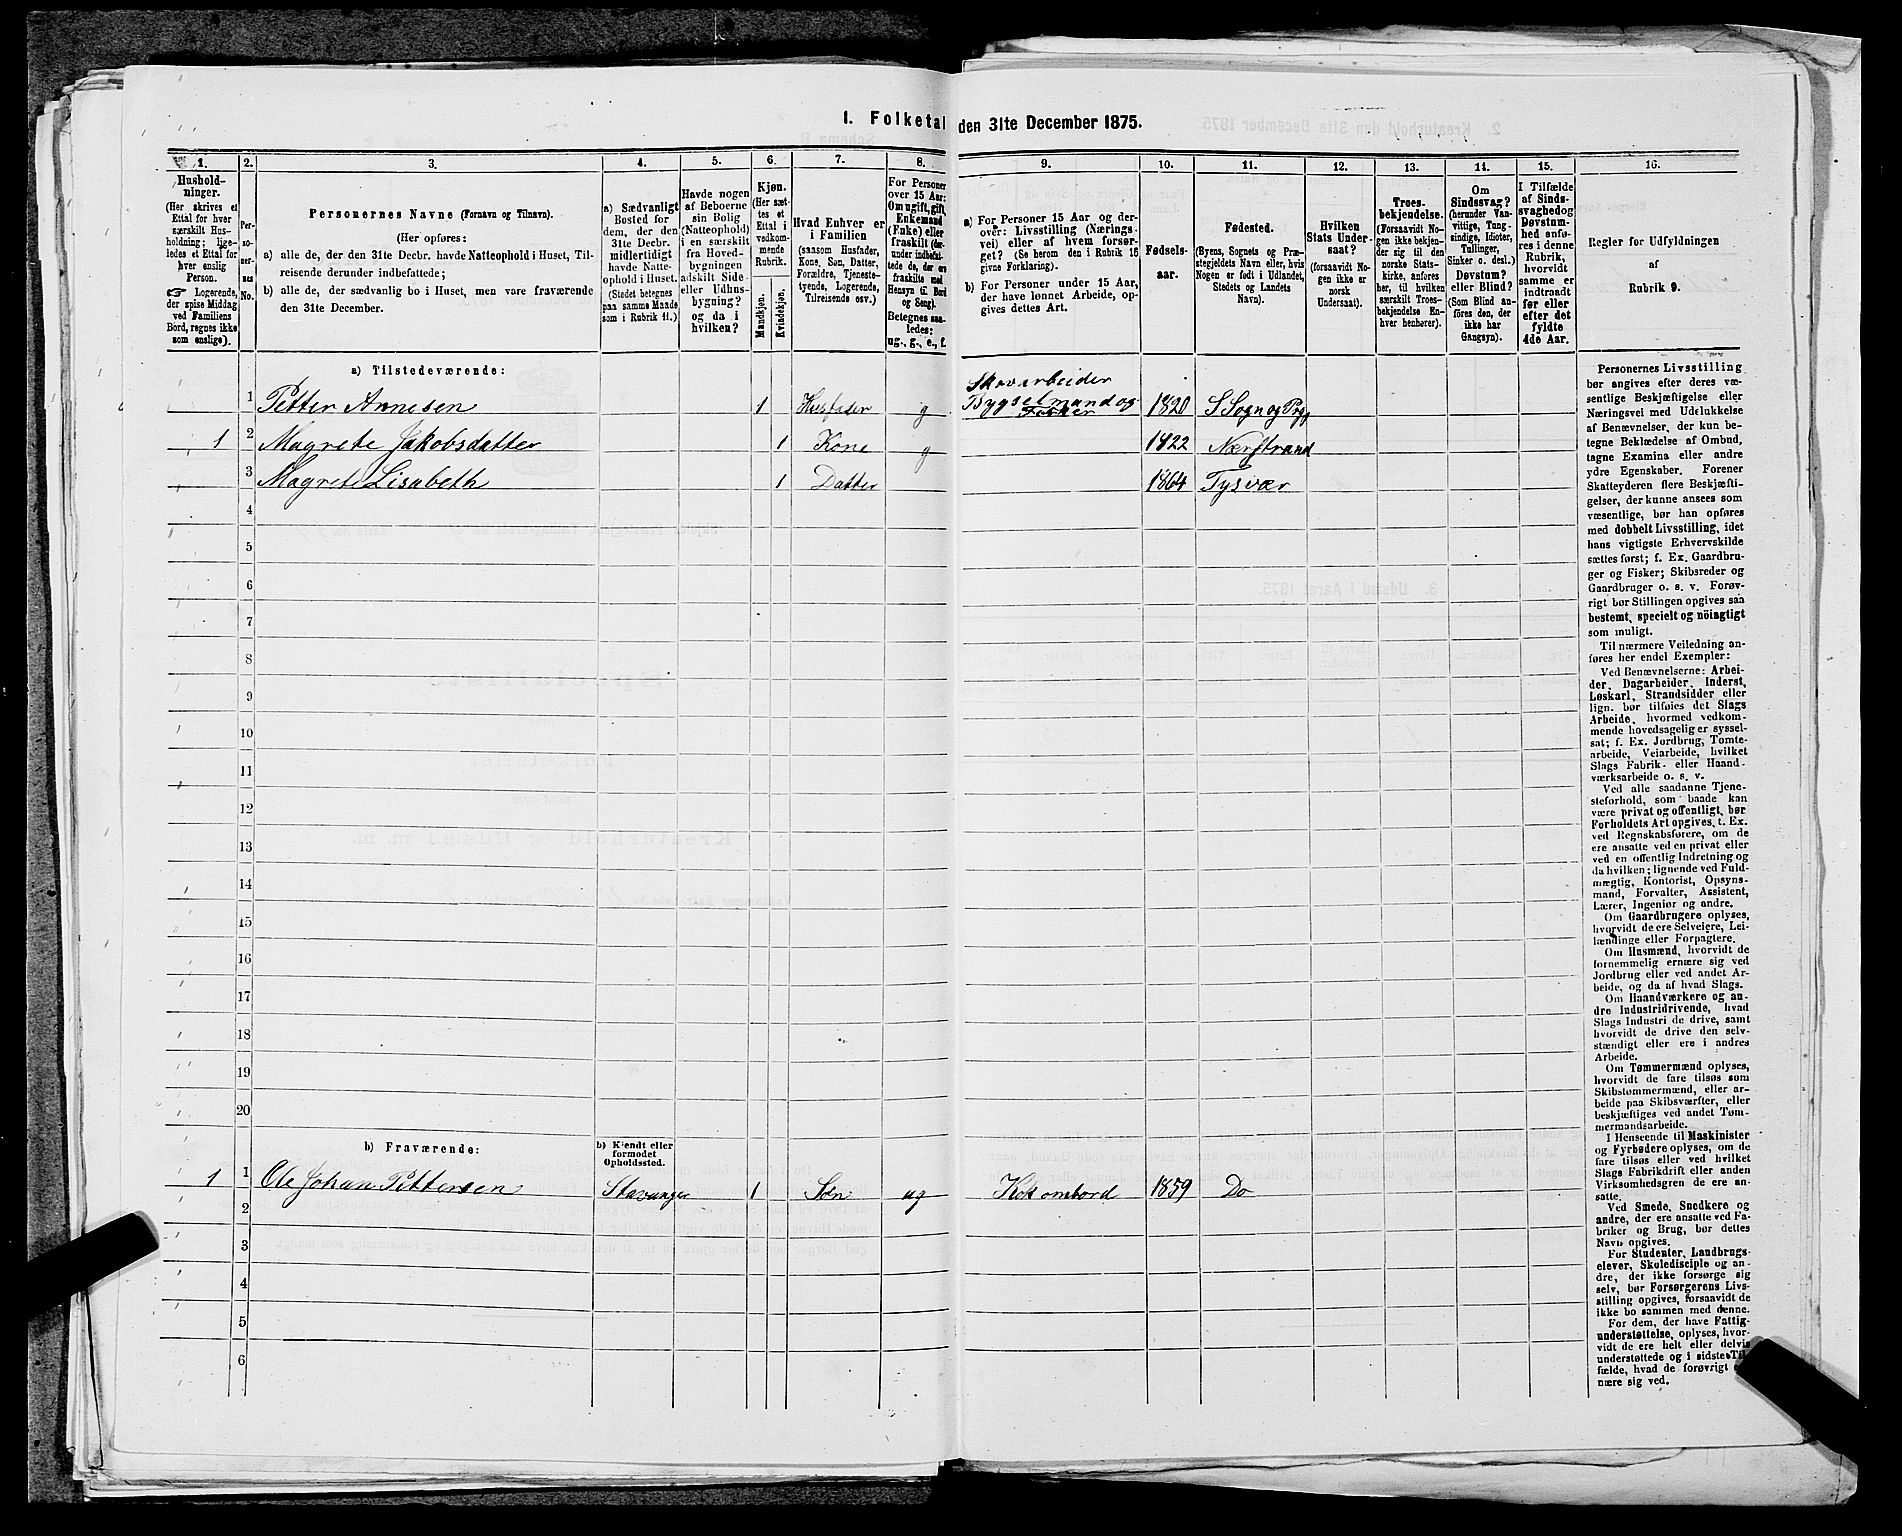 1. Folketal den 31te December 1875.
1. 2. 3. 4. 5. 6. 7. 8. 9. 10. 11. 12. 13. 14. 15. 16.
Hushold-
ninger.
(Her skrives et
Ettal for hver
særskilt Hus-
holdning; lige-
ledes et Ettal for
hver enslig
Person.
☞ Logerende,
der spise Middag
ved Familiens
Bord, regnes ikke
som enslige).
Per-
so-
ner-
nes
No.
Personernes Navne (Fornavn og Tilnavn).
(Her opføres:
a) alle de, der den 31te Decbr. havde Natteophold i Huset, Til-
reisende derunder indbefattede;
b) alle de, der sædvanlig bo i Huset, men vare fraværende
den 31te December.
a) Sædvanligt
Bosted for
dem, der den
31te Decbr.
midlertidigt
havde Natte-
ophold i Huset.
(Stedet betegnes
paa samme Maade
som i Rubrik 11.)
Havde nogen
af Beboerne
sin Bolig
(Natteophold)
i en særskilt
fra Hoved-
bygningen
adskilt Side-
eller Udhus-
bygning?
og da i
hvilken?
Kjøn.
(Her sæt-
tes et
Ettal i
vedkom-
mende
Rubrik.
Mandkjøn.
Kvindekjøn.
Hvad Enhver er
i Familien
(saasom Husfader,
Kone, Søn, Datter,
Forældre, Tjeneste-
tyende, Logerende,
Tilreisende osv.)
For Personer
over 15 Aar:
Om ugift, gift,
Enkemand
(Enke) eller
fraskilt (her-
under indbefat-
tede de, der ere
fraskilte med
Hensyn til Bord
og Seng).
Betegnes saa-
ledes:
ug., g., e., f.
a) For Personer 15 Aar og der-
over: Livsstilling (Nærings-
vei) eller af hvem forsør-
get? (Se herom den i Rubrik 16
givne Forklaring).
b) For Personer under 15 Aar,
der have lønnet Arbeide, op-
gives dettes Art.
Fødsels-
aar.
Fødested.
(Byens, Sognets og Præ-
stegjeldets Navn eller, hvis
Nogen er født i Udlandet,
Stedets og Landets
Navn).
Hvilken
Stats Under-
saat?
(forsaavidt No-
gen ikke er
norsk
Undersaat).
Troes-
bekjendelse.
(Forsaavidt No-
gen ikke bekjen-
der sig til den
norske Stats-
kirke, anføres
her, til hvilken
særskilt Troes-
bekjendelse En-
hver henhører).
Om
Sindssvag?
(herunder Van-
vittige, Tung-
sindige, Idioter,
Tullinger,
Sinker o. desl.)
Døvstum?
eller Blind?
(Som Blind an-
føres den, der
ikke har
Gangsyn).
I Tilfælde
af Sinds-
svaghed og
Døvstum-
hed anfø-
res i denne
Rubrik,
hvorvidt
samme er
indtraadt
før eller
efter det
fyldte
4de Aar.
Regler for Udfyldningen
af
Rubrik 9.
a) Tilstedeværende:
1 Petter Annesen 1 Husfader g Skovarbeider
Bygselmand og
Fisker 1820 S Sogn og Prg
1 2 Magrete Jakobsdatter 1 Kone g 1822 Nærstrand
3 Magrete Lisabeth 1 Datter 1864 Tysvær
4
5
6
7
8
9
10
11
12
13
14
15
16
17
18
19
20
b) Fraværende:
b) Kjendt eller
formodet
Opholdssted.
1 1 Ole Johan Pettersen Stavanger 1 Søn ug Kok ombord 1859 Do
2
3
4
5
6
Personernes Livsstilling
bør angives efter deres væ-
sentlige Beskjæftigelse eller
Næringsvei med Udelukkelse
af Benævnelser, der kun be-
tegne Beklædelse af Ombud,
tagne Examina eller andre
ydre Egenskaber. Forener
Skatteyderen flere Beskjæfti-
gelser, der kunne ansees som
væsentlige, bør han opføres
med dobbelt Livsstilling, idet
hans vigtigste Erhvervskilde
sættes først; f. Ex. Gaardbru-
ger og Fisker; Skibsreder og
Gaardbruger o. s. v. Forøv-
rigt bør Stillingen opgives saa
bestemt, specielt og nöiagtigt
som muligt.
Til nærmere Veiledning an-
føres her endel Exempler:
Ved Benævnelserne: Arbei-
der, Dagarbeider, Inderst,
Løskarl, Strandsidder eller
lign. bør tilføies det Slags
Arbeide, hvormed vedkom-
mende hovedsagelig er syssel-
sat; f. Ex. Jordbrug, Tomte-
arbeide, Veiarbeide, hvilket
Slags Fabrik- eller Haand-
værksarbeide o. s. v.
Ved alle saadanne Tjene-
steforhold, som baade kan
være privat og offentligt, bør
Forholdets Art opgives, t. Ex.
ved Regnskabsførere, om de
ere ansatte ved en privat eller
ved en offentlig Indretning og
da hvilken; lignende ved Fuld-
mægtig, Kontorist, Opsyns-
mand, Forvalter, Assistent,
Lærer, Ingeniør og andre.
Om Gaardbrugere oplyses,
hvorvidt de ere Selveiere, Lei-
lændinge eller Forpagtere.
Om Husmænd, hvorvidt de
fornemmelig ernære sig ved
Jordbrug eller ved andet Ar-
beide, og da af hvad Slags.
Om Haandværkere og an-
dre Industridrivende, hvad
Slags Industri de drive, samt
hvorvidt de drive den selv-
stændigt eller ere i andres
Arbeide.
Om Tømmermænd oplyses,
hvorvidt de fare tilsøs som
Skibstømmermænd, eller ar-
beide paa Skibsværfter, eller
beskjæftiges ved andet Tøm-
mermandsarbeide.
I Henseende til Maskinister
og Fyrbødere oplyses, om de
fare tilsøs eller ved hvilket
Slags Fabrikdrift eller anden
Virksomhedsgren de ere an-
satte.
Ved Smede, Snedkere og
andre, der ere ansatte ved Fa-
briker og Brug, bør dettes
Navn opgives.
For Studenter, Landbrugs-
elever, Skoledisciple og an-
dre, der ikke forsørge sig
selv, bør Forsørgerens Livs-
stilling opgives, forsaavidt de
ikke bo sammen med denne.
For dem, der have Fattig-
understøttelse, oplyses, hvor-
vidt de ere helt eller delvis
understøttede og i sidste Til-
fælde, hvad de forøvrigt
nære sig ved.